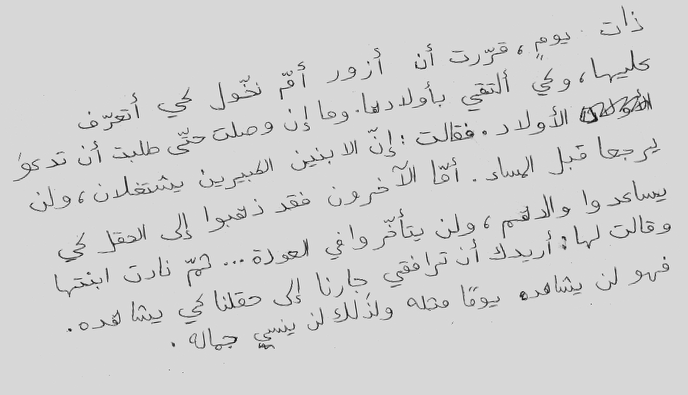 ذات يومٍ، قرّرت أن أزور أمّ نخّول كي أتعرّف
عليها، وكي ألتقي بأولادها. وما إن وصلت حتّى طلبت أن تدعوَ
الأولاد. فقالت: إنّ الابنين الكبيرين يشتغلان، ولن
يرجعا قبل المساء. أمّا الآخرون فقد ذهبوا إلى الحقل كي
يساعدوا والدهم، ولن يتأخّروا في العودة... ثمّ نادت ابنتها
وقالت لها: أريدك أن ترافقي جارنا إلى حقلنا كي يشاهده.
فهو لن يشاهد يومًا مثله ولذلك لن ينسى جماله.